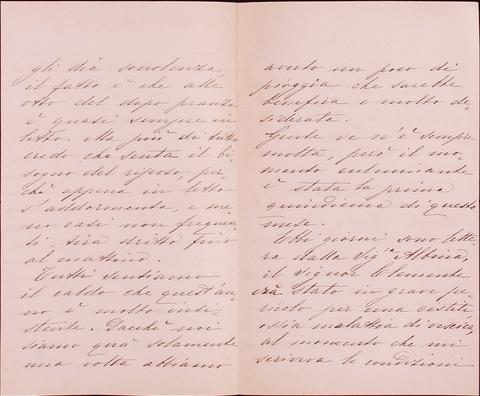 gli dia sonolenza,
il fatto è che alle
otto del dopo pranzo
è quasi sempre in
letto. Ma più di tutto
credo che senta il bi-
sogno del riposo, per-
chè appena in letto
s'addormenta, e me-
no casi non frequen-
ti, tira dritto fino
al mattino.
Tutti sentiamo
il caldo che quest'an-
no è molto insi-
stente. Dacchè noi
siamo quà solamente
una volta abbiamo
avuto un poco di
pioggia che sarebbe
benefica e molto de-
siderata.
Gente ve n'è sempre
molta, però il mo-
mento culminante
è stata la prima
quindicina di questo
mese.
Ebbi giorni sono lette-
ra dalla Sigª Albina,
il Signor Clemente
era stato in grave pe-
ricolo per una cistite
ossia malattia di vescica,
al momento che mi
scriveva le condizioni